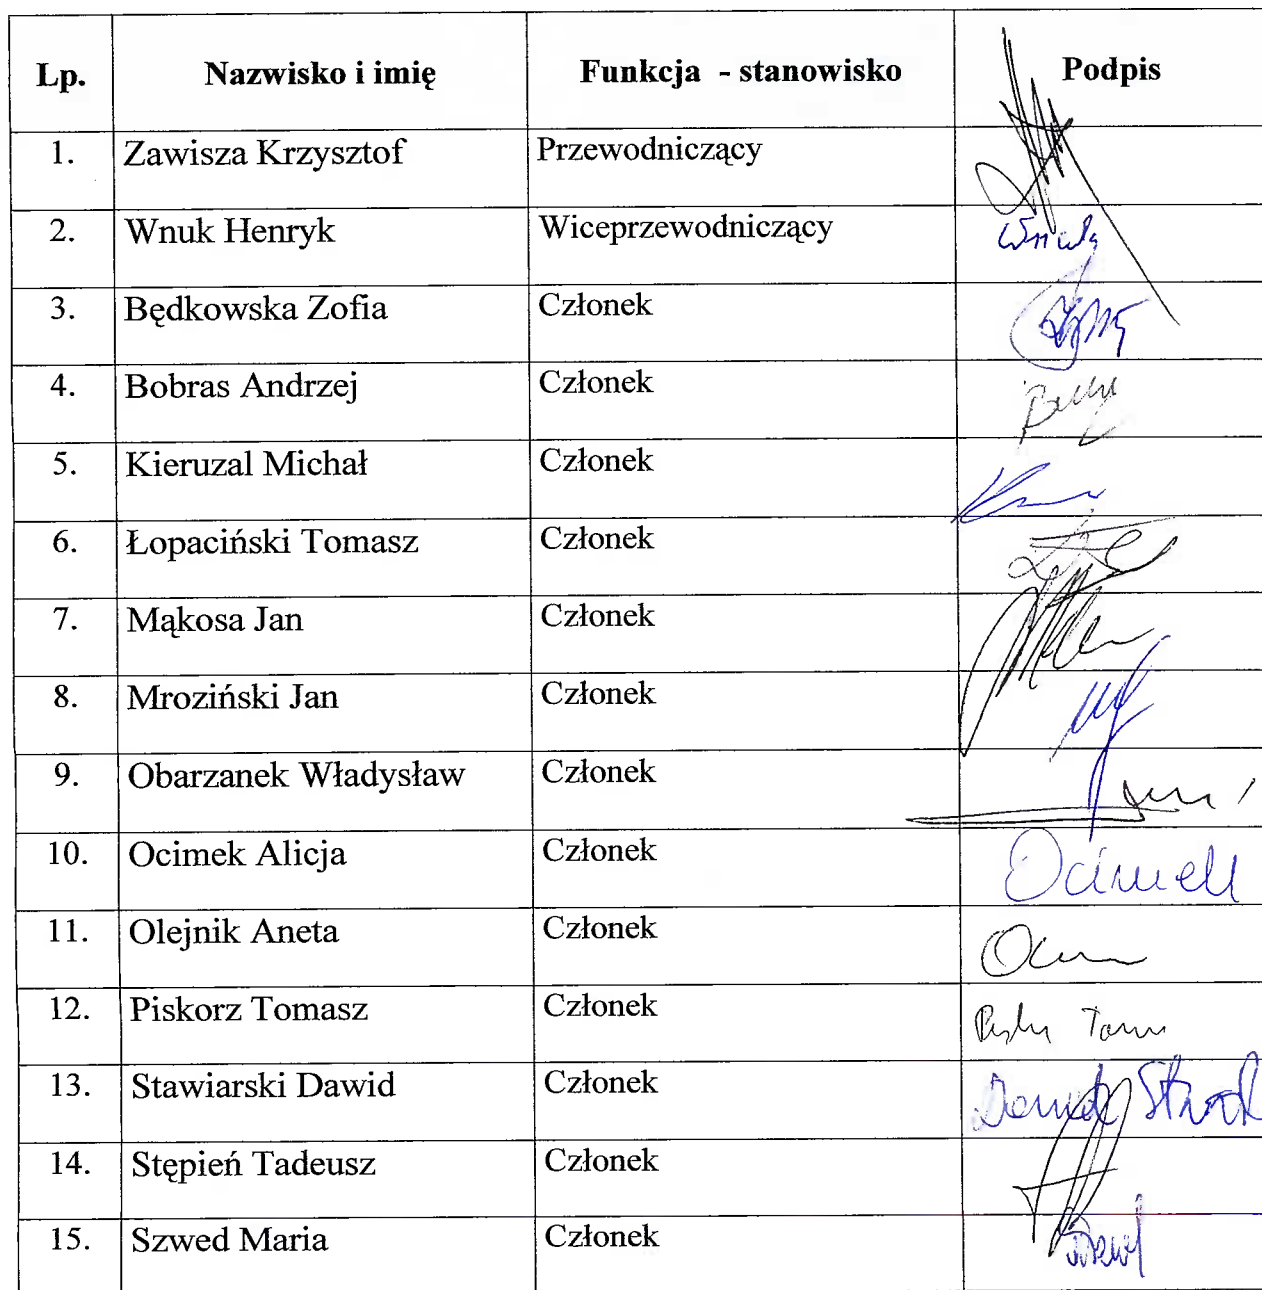 Lp. Nazwisko i imię Funkcja - stanowisko Podpis
1. Zawisza Krzysztof Przewodniczący
2. Wnuk Henryk Wiceprzewodniczący Wnuk
3. Będkowska Zofia Członek
4. Bobras Andrzej Członek
5. Kieruzal Michał Członek
6. Łopaciński Tomasz Członek
7. Mąkosa Jan Członek
8. Mroziński Jan Członek
9. Obarzanek Władysław Członek
10. Ocimek Alicja Członek Ocimek
11. Olejnik Aneta Członek
12. Piskorz Tomasz Członek
13. Stawiarski Dawid Członek Dawid
14. Stępień Tadeusz Członek
15. Szwed Maria Członek Szwed